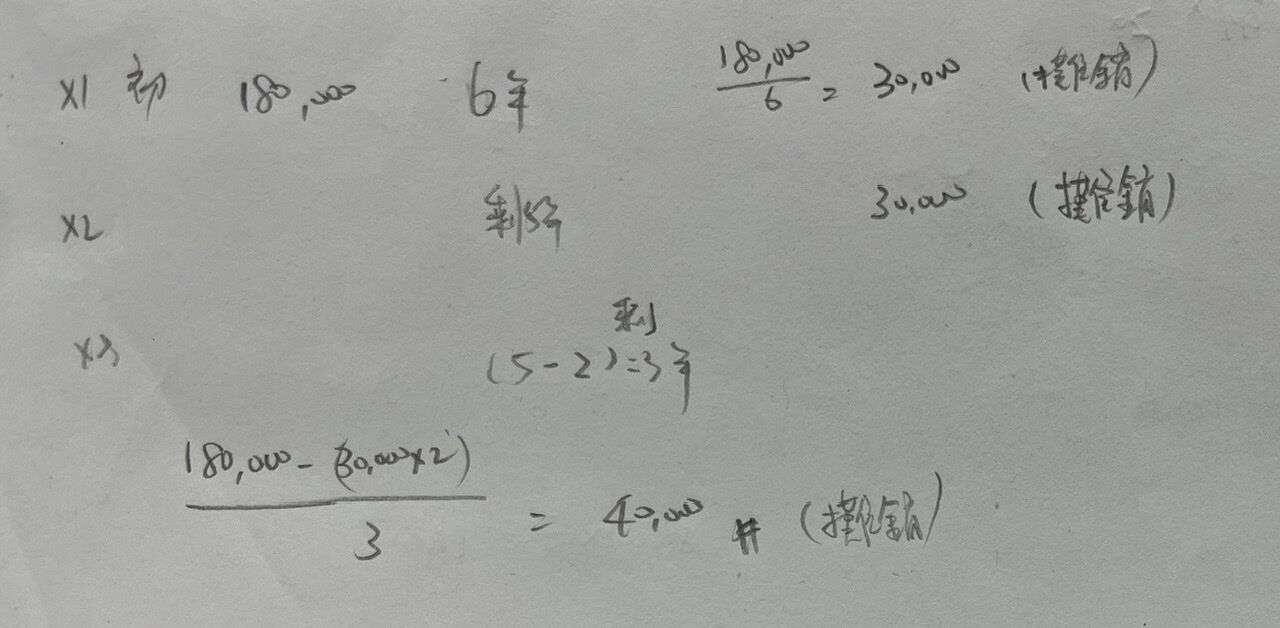 X1 初 180,000 6年 180,000/6 = 30,000 (攤銷)
X2 剩5年 30,000 (攤銷)
剩
X3 (5-2)=3年
180,000-(30,000×2)
/3 = 40,000 # (攤銷)